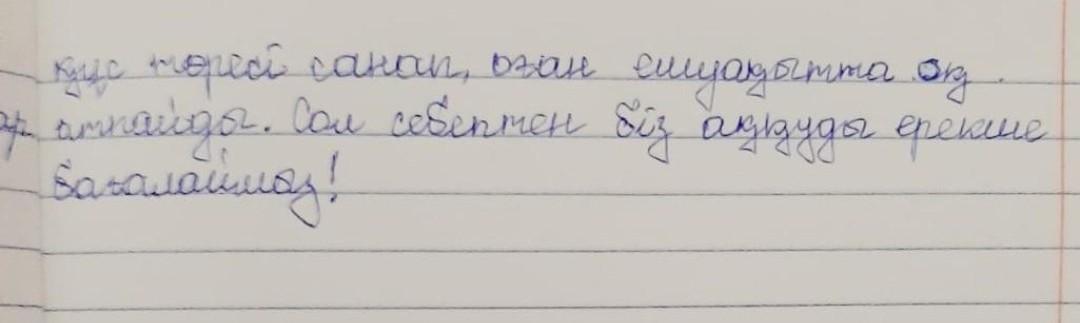 құс төресі санап, оған ешуақытта оқ
атпайды. Сол себептен біз аққуды ерекше
бағалаймыз!